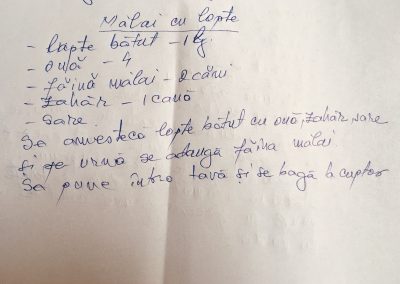 Mălai cu lapte
- lapte bătut - 1 kg.
- ouă - 4
- făină mălai - 2 căni
- zahăr - 1 cană
- sare.
Se amestecă lapte bătut cu ouă, zahăr, sare
și pe urmă se adaugă făina mălai.
Se pune într-o tavă și se bagă la cuptor